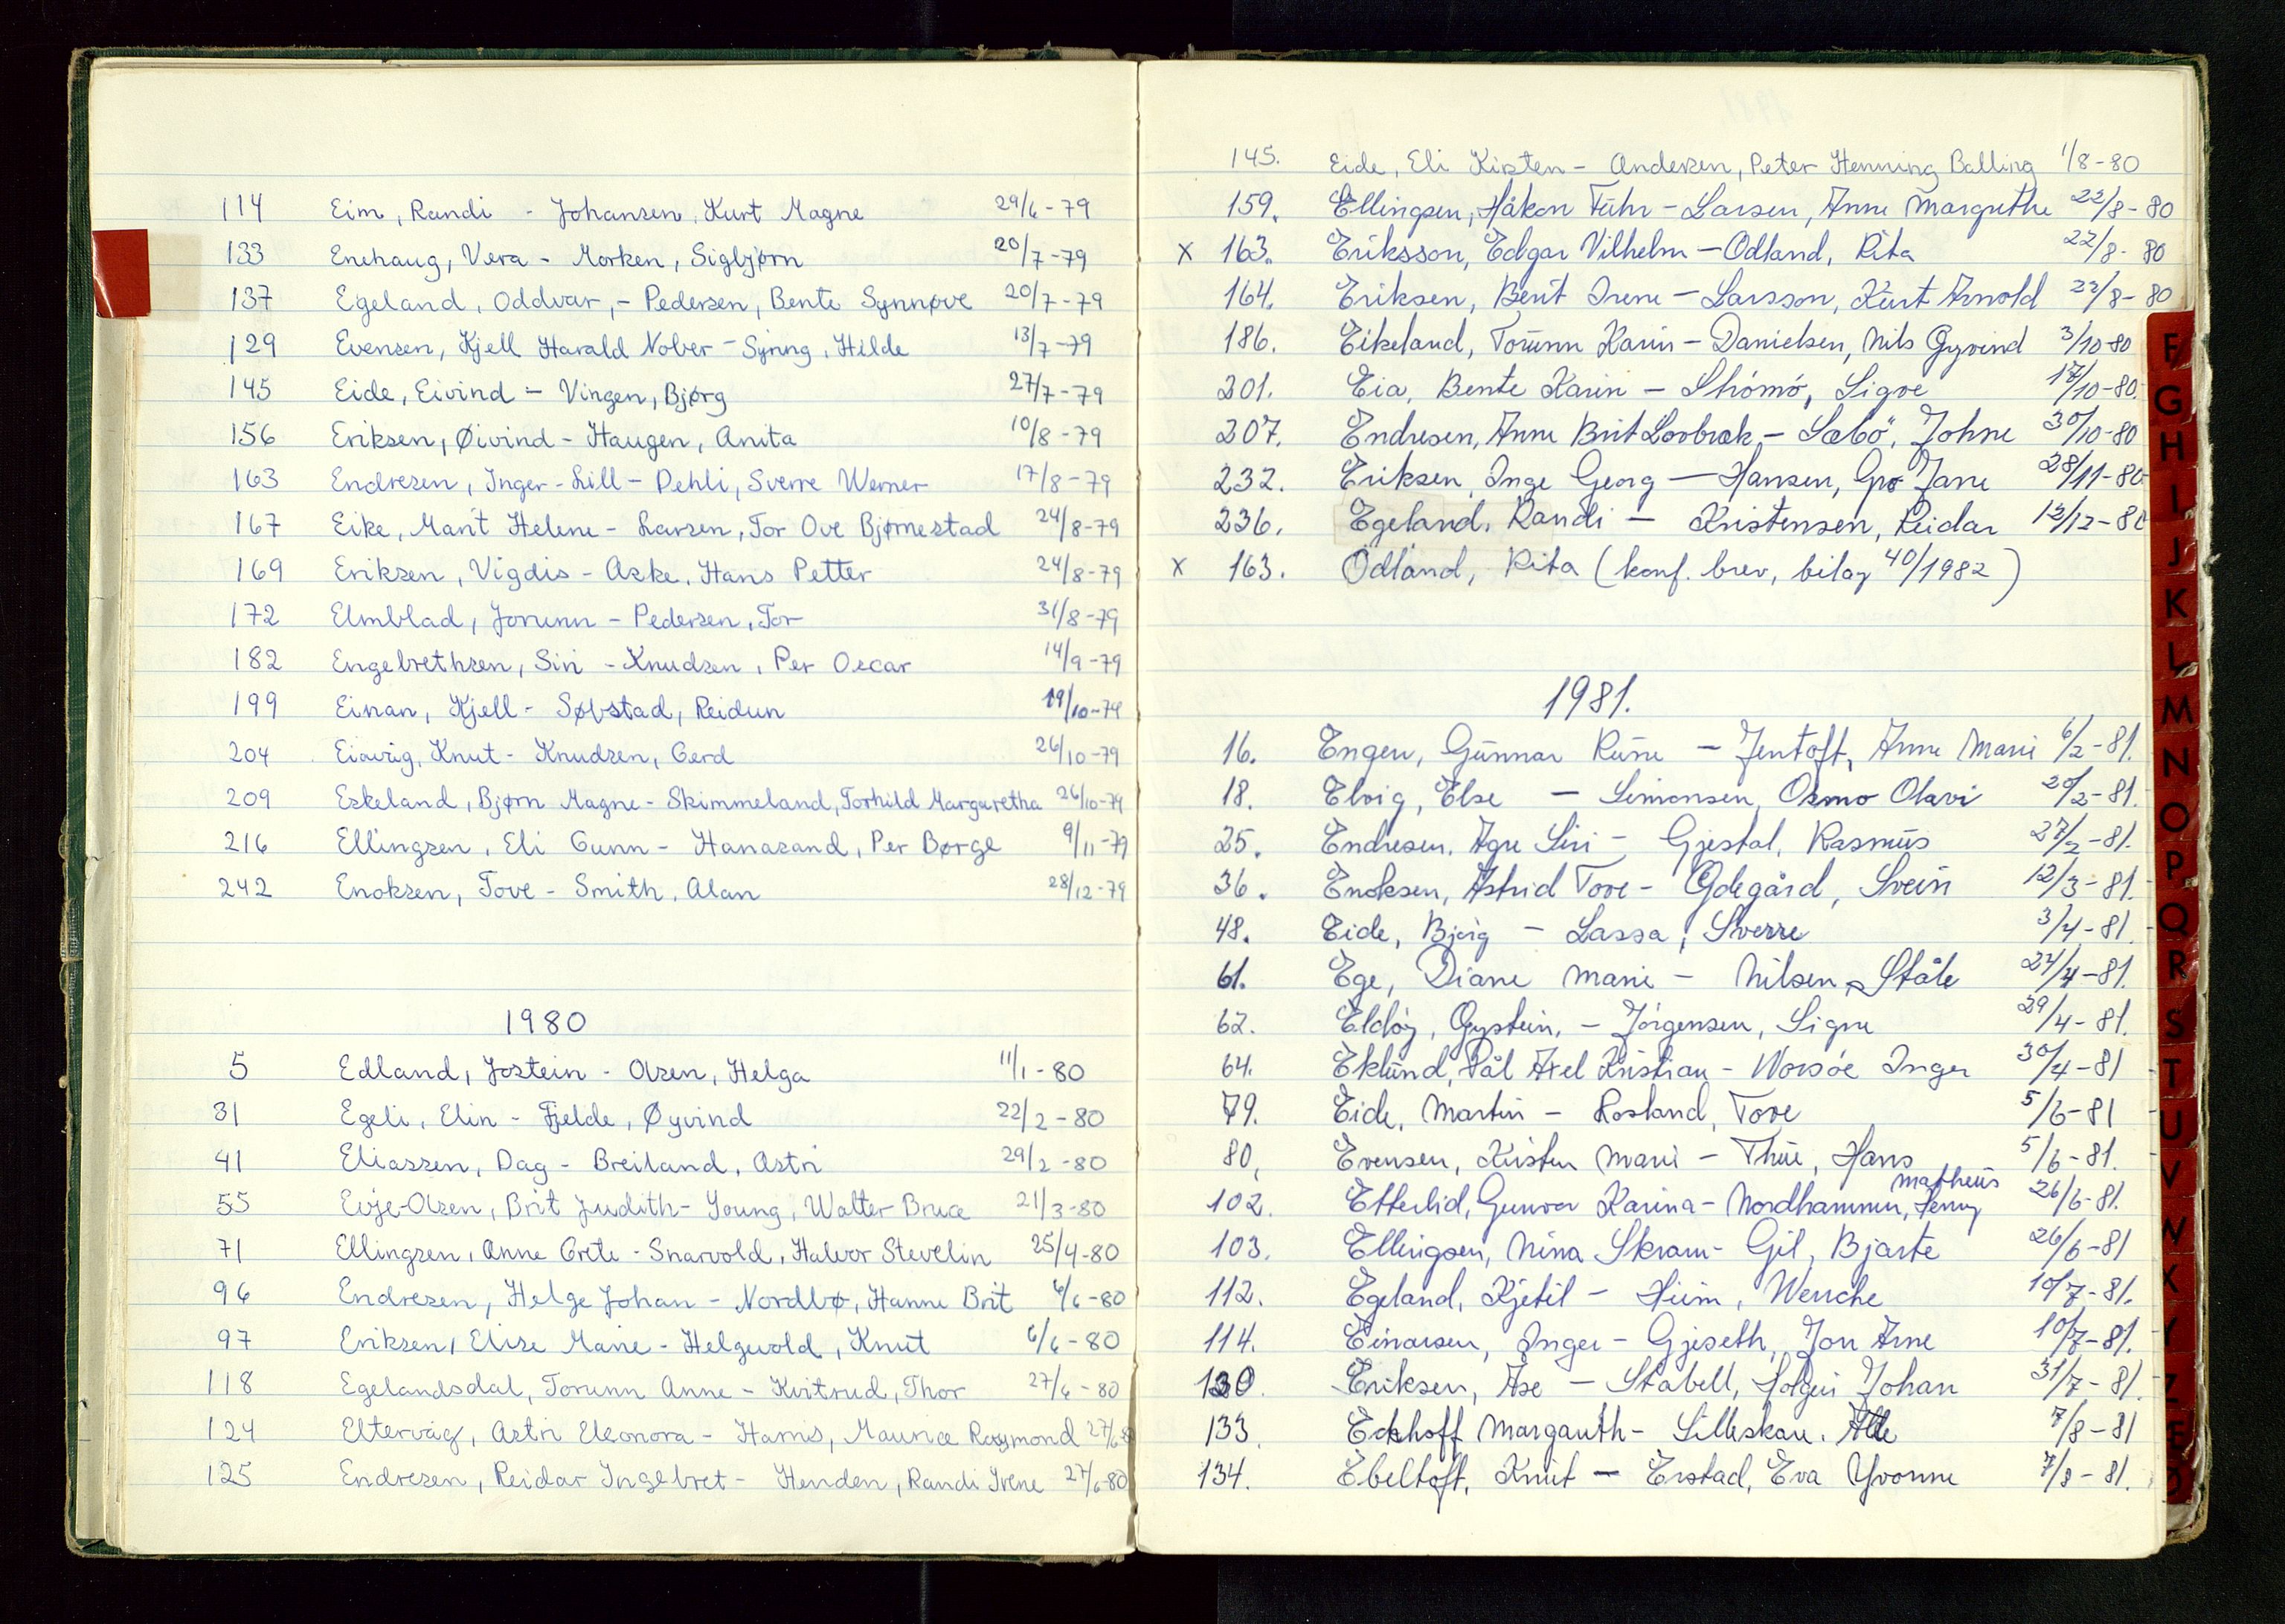 114 Eim, Randi - Johansen, Kurt Magne 29/6-79
133 Enehaug, Vera - Morken, Sigbjørn 20/7-79
137 Egeland, Oddvar, - Pedersen, Bente Synnøve 20/7-79
129 Evensen, Kjell Harald Nober - Syning, Hilde 13/7-79
145 Eide, Eivind - Vingen, Bjørg 27/7-79
156 Eriksen, Øivind - Haugen, Anita 10/8-79
163 Endresen, Inger-Lill - Dehli, Sverre Werner 17/8-79
167 Eike, Marit Helene - Larsen, Tor Ove Bjørnestad 24/8-79
169 Eriksen, Vigdis - Aske, Hans Petter 24/8-79
172 Elmblad, Jorunn - Pedersen, Tor 31/8-79
182 Engebrethsen, Siri - Knudsen, Per Oscar 14/9-79
199 Einan, Kjell - Søbstad, Reidun 19/10-79
204 Knut - Knudsen, Gerd 26/10-79
209 Eskeland, Bjørn Magne - Skimmeland, Torhild Margaretha 26/10-79
216 Ellingsen, Eli Gunn - Hanasand, Per Børge 9/11-79
242 Enoksen, Tove - Smith, Alan 28/12-79
1980
5 Edland, Jostein - Olsen, Helga 11/1-80
31 Egeli, Elin - Fjelde, Øyvind 22/2-80
41 Eliassen, Dag - Breiland, Astri 29/2-80
55 Evje-Olsen, Brit Judith - Young, Walter Bruce 21/3-80
71 Ellingsen, Anne Grete - Snarvold, Halvor Stevelin 25/4-80
96 Endresen, Helge Johan - Nordbø, Hanne Brit 6/6-80
97 Eriksen, Elise Marie - Helgevold, Knut 6/6-80
118 Egelandsdal, Torunn Anne - Kvitrud, Thor 27/6-80
124 Eltervåg, Astri Eleonora - Harris, Maurice Raymond 27/6-8
125 Endresen, Reidar Ingebret - Henden, Randi Irene 27/6-80
145. Eide, Eli Kirsten - Andersen, Peter Henning Balling 1/8-80
159. Ellingsen, Håkon Führ - Larsen, Anne Margrethe 22/8-80
x 163. Eriksson, Edgar Vilhelm - Odland, Rita 22/8-80
164. Eriksen, Berit Irene - Larsson, Kurt Arnold 22/8-80
186. Eikeland, Torunn Karin - Danielsen, Nils Øyvind 3/10-80
201. Eia, Bente Karin - Strömö, Sigve 17/10-80
207. Endresen, Anne Brit Lovbrøk - Sæbö, Johne 30/10-80
232. Eriksen, Inge Georg - Hansen, Gro Jane 28/11-80
236. Egeland, Randi - Kristensen, Reidar 12/12-80
x 163. Ödland, Rita (konf. brev, bilag 40/1982)
1981.
16. Engen, Gunnar Rune - Jentoft, Anne Marie 6/2-81.
18. Elvig, Else - Simonsen, Osmo Olavi 20/2-81.
25. Endresen, Siri - Gjestal, Rasmus 27/2-81.
36. Enoksen, Astrid Tove - Ødegård, Svein 12/3-81.
48. Eide, Bjørg - Lassa, Sverre 3/4-81.
61. Ege, Diane Marie - Nilsen, Ståle 24/4-81.
62. Eldöy, Øystein, - Jörgensen, Signe 29/4-81.
64. Eklund, Pål Axel Kristian - Worsöe Inger 30/4-81
79. Eide, Martin - Rosland, Tove 5/6-81
80, Evensen, Kirsten Marie - Thue, Hans Matheus 5/6-81.
102. Etterlid, Gunvor Karina - Nordhammer, Jenny 26/6-81.
103. Ellingsen, Nina Skram - Gil, Bjarte 26/6-81
112. Egeland, Kjetil - Hiim, Wenche 10/7-81.
114. Einarsen, Inger - Gjeseth, Jon Arne 10/7-81.
130. Eriksen, Åse - Stabell, Holger Johan 31/7-81.
133. Eckhoff Margareth - Silleskau. Atle 7/8-81
134. Ebeltoft, Knut - Erstad, Eva Yvonne 7/8-81.
F
G
H
I
J
K
L
M
N
O
P
Q
R
S
T
U
V
W
X
Y
Z
Æ
Ø